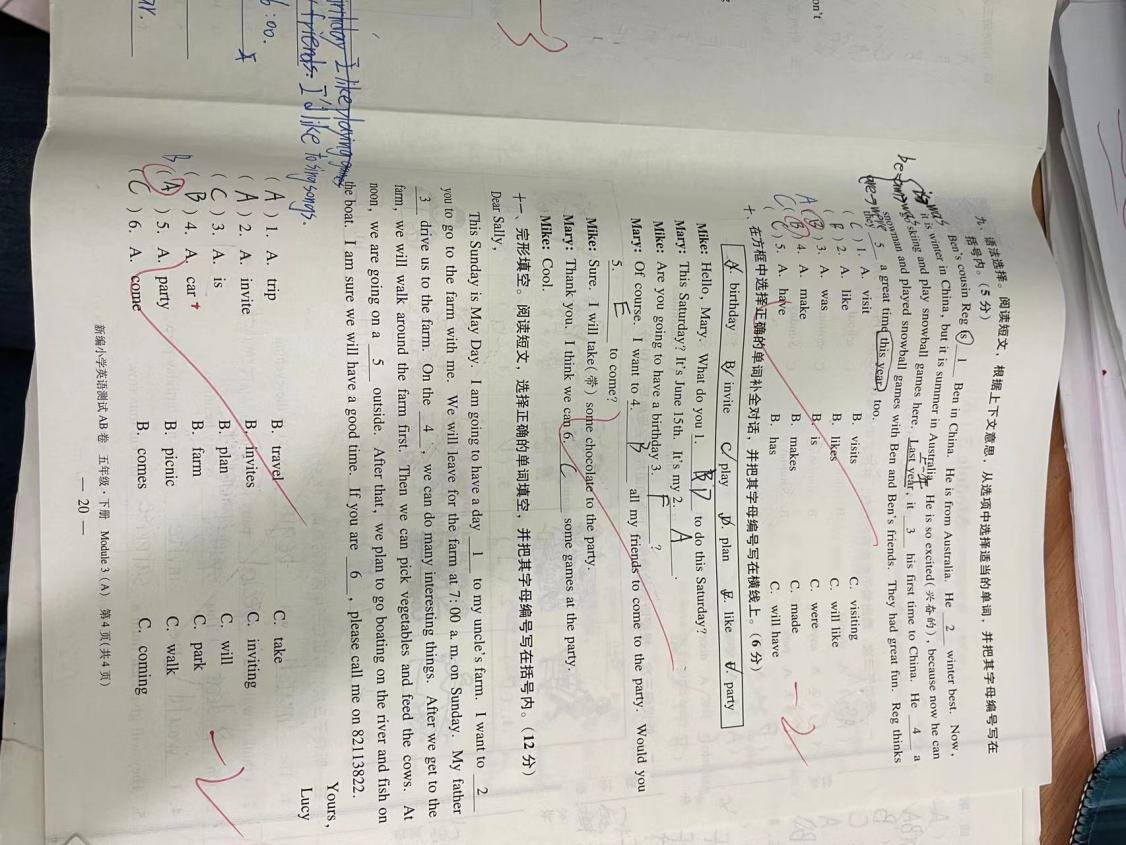 九、语法选择。阅读短文，根据上下文意思，从选项中选择适当的单词，并把其字母编号写在
括号内。（5 分）
Ben's cousin Reg (s) 1 Ben in China. He is from Australia. He 2 winter best. Now,
it is winter in China, but it is summer in Australia. He is so excited(兴奋的), because now he can
skiing and play snowball games here. Last year, it 3 his first time to China. He 4 a
snowman and played snowball games with Ben and Ben's friends. They had great fun. Reg thinks
they 5 a great time this year, too.
( C ) 1. A. visit B. visits C. visiting
2. A. like B. likes C. will like
A ( B ) 3. A. was B. is C. were
( B ) 4. A. make B. makes C. made
( C ) 5. A. have B. has C. will have
-2
十、在方框中选择正确的单词补全对话，并把其字母编号写在横线上。（6 分）
A. birthday B. invite C. play D. plan E. like F. party
Mike: Hello, Mary. What do you 1. D to do this Saturday?
Mary: This Saturday? It's June 15th. It's my 2. A .
Mike: Are you going to have a birthday 3. F ?
Mary: Of course. I want to 4. B all my friends to come to the party. Would you
5. E to come?
Mike: Sure. I will take(带) some chocolate to the party.
Mary: Thank you. I think we can 6. C some games at the party.
Mike: Cool.
十一、完形填空。阅读短文，选择正确的单词填空，并把其字母编号写在括号内。（12 分）
Dear Sally,
This Sunday is May Day. I am going to have a day 1 to my uncle's farm. I want to 2
you to go to the farm with me. We will leave for the farm at 7:00 a. m. on Sunday. My father
3 drive us to the farm. On the 4 , we can do many interesting things. After we get to the
farm, we will walk around the farm first. Then we can pick vegetables and feed the cows. At
noon, we are going on a 5 outside. After that, we plan to go boating on the river and fish on
the boat. I am sure we will have a good time. If you are 6 , please call me on 82113822.
Yours,
Lucy
( A ) 1. A. trip B. travel C. take
( A ) 2. A. invite B. invites C. inviting
( C ) 3. A. is B. plan C. will
( B ) 4. A. car B. farm C. park
B ( A ) 5. A. party B. picnic C. walk
( C ) 6. A. come B. comes C. coming
-2
新编小学英语测试 AB 卷 五年级·下册 Module 3 (A) 第 4 页(共 4 页)
— 20 —
I like playing games
friends. I'd like to sing songs.
6:00.
on't